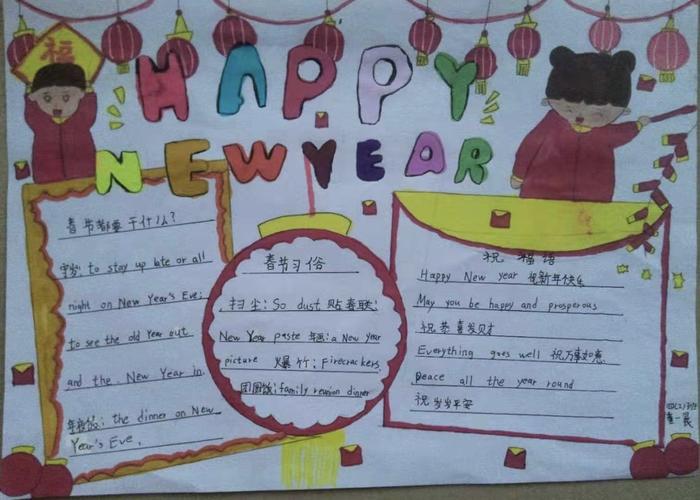 福
HAPPY
NEW YEAR
春节都要干什么?
守岁: to stay up late or all
night on New Year's Eve;
to see the old Year out
and the New Year in.
年夜饭: the dinner on New
Year's Eve.
春节习俗
扫尘: So dust 贴春联:
New Year paste 年画: a New year
picture 爆竹: Firecrackers.
团圆饭: family reunion dinner
祝福语
Happy New year 祝新年快乐
May you be happy and prosperous
祝恭喜发财
Everything goes well 祝万事如意.
peace all the year round
祝岁岁平安